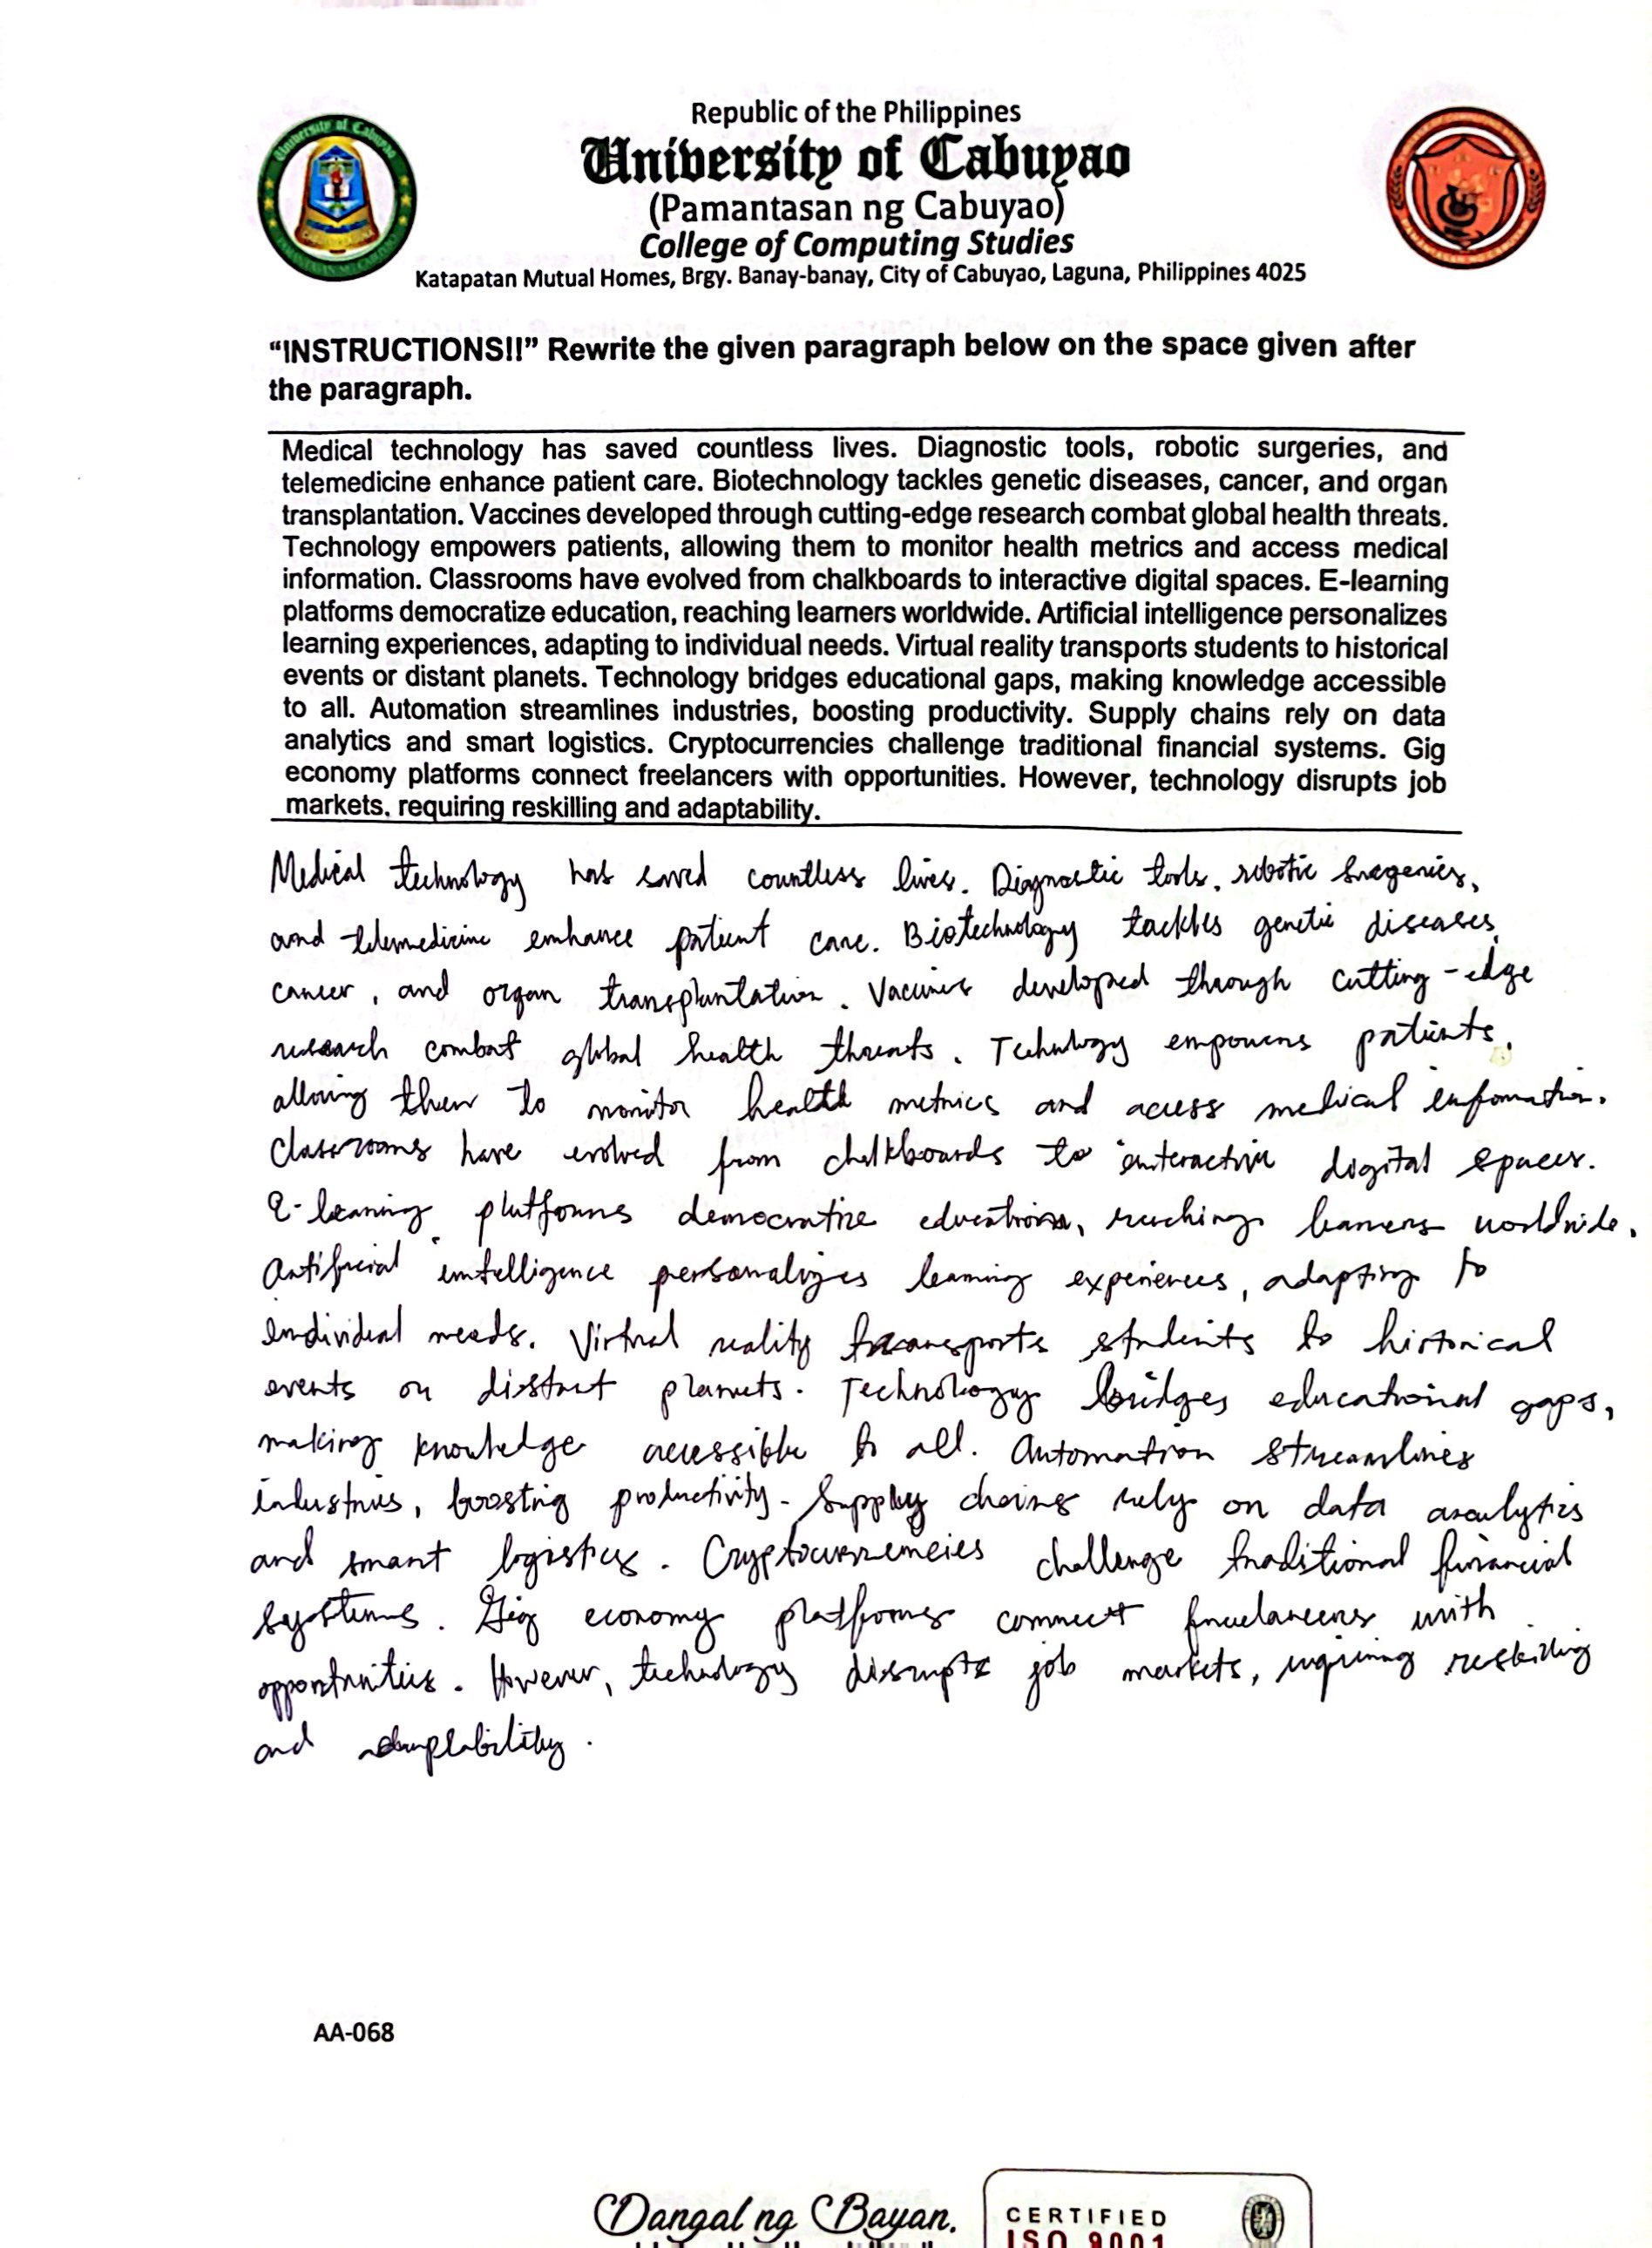 Republic of the Philippines
University of Cabuyao
(Pamantasan ng Cabuyao)
College of Computing Studies
Katapatan Mutual Homes, Brgy. Banay-banay, City of Cabuyao, Laguna, Philippines 4025
“INSTRUCTIONS!!” Rewrite the given paragraph below on the space given after
the paragraph.
Medical technology has saved countless lives. Diagnostic tools, robotic surgeries, and
telemedicine enhance patient care. Biotechnology tackles genetic diseases, cancer, and organ
transplantation. Vaccines developed through cutting-edge research combat global health threats.
Technology empowers patients, allowing them to monitor health metrics and access medical
information. Classrooms have evolved from chalkboards to interactive digital spaces. E-learning
platforms democratize education, reaching learners worldwide. Artificial intelligence personalizes
learning experiences, adapting to individual needs. Virtual reality transports students to historical
events or distant planets. Technology bridges educational gaps, making knowledge accessible
to all. Automation streamlines industries, boosting productivity. Supply chains rely on data
analytics and smart logistics. Cryptocurrencies challenge traditional financial systems. Gig
economy platforms connect freelancers with opportunities. However, technology disrupts job
markets, requiring reskilling and adaptability.
Medical technology has saved countless lives. Diagnostic tools, robotic surgeries,
and telemedicine enhance patient care. Biotechnology tackles genetic diseases,
cancer, and organ transplantation. Vaccines developed through cutting-edge
research combat global health threats. Technology empowers patients,
allowing them to monitor health metrics and access medical information.
Classrooms have evolved from chalkboards to interactive digital spaces.
E-learning platforms democratize education, reaching learners worldwide.
Artificial intelligence personalizes learning experiences, adapting to
individual needs. Virtual reality transports students to historical
events or distant planets. Technology bridges educational gaps,
making knowledge accessible to all. Automation streamlines
industries, boosting productivity. Supply chains rely on data analytics
and smart logistics. Cryptocurrencies challenge traditional financial
systems. Gig economy platforms connect freelancers with
opportunities. However, technology disrupts job markets, requiring reskilling
and adaptability.
AA-068
Dangal ng Bayan.
CERTIFIED
ISO 9001